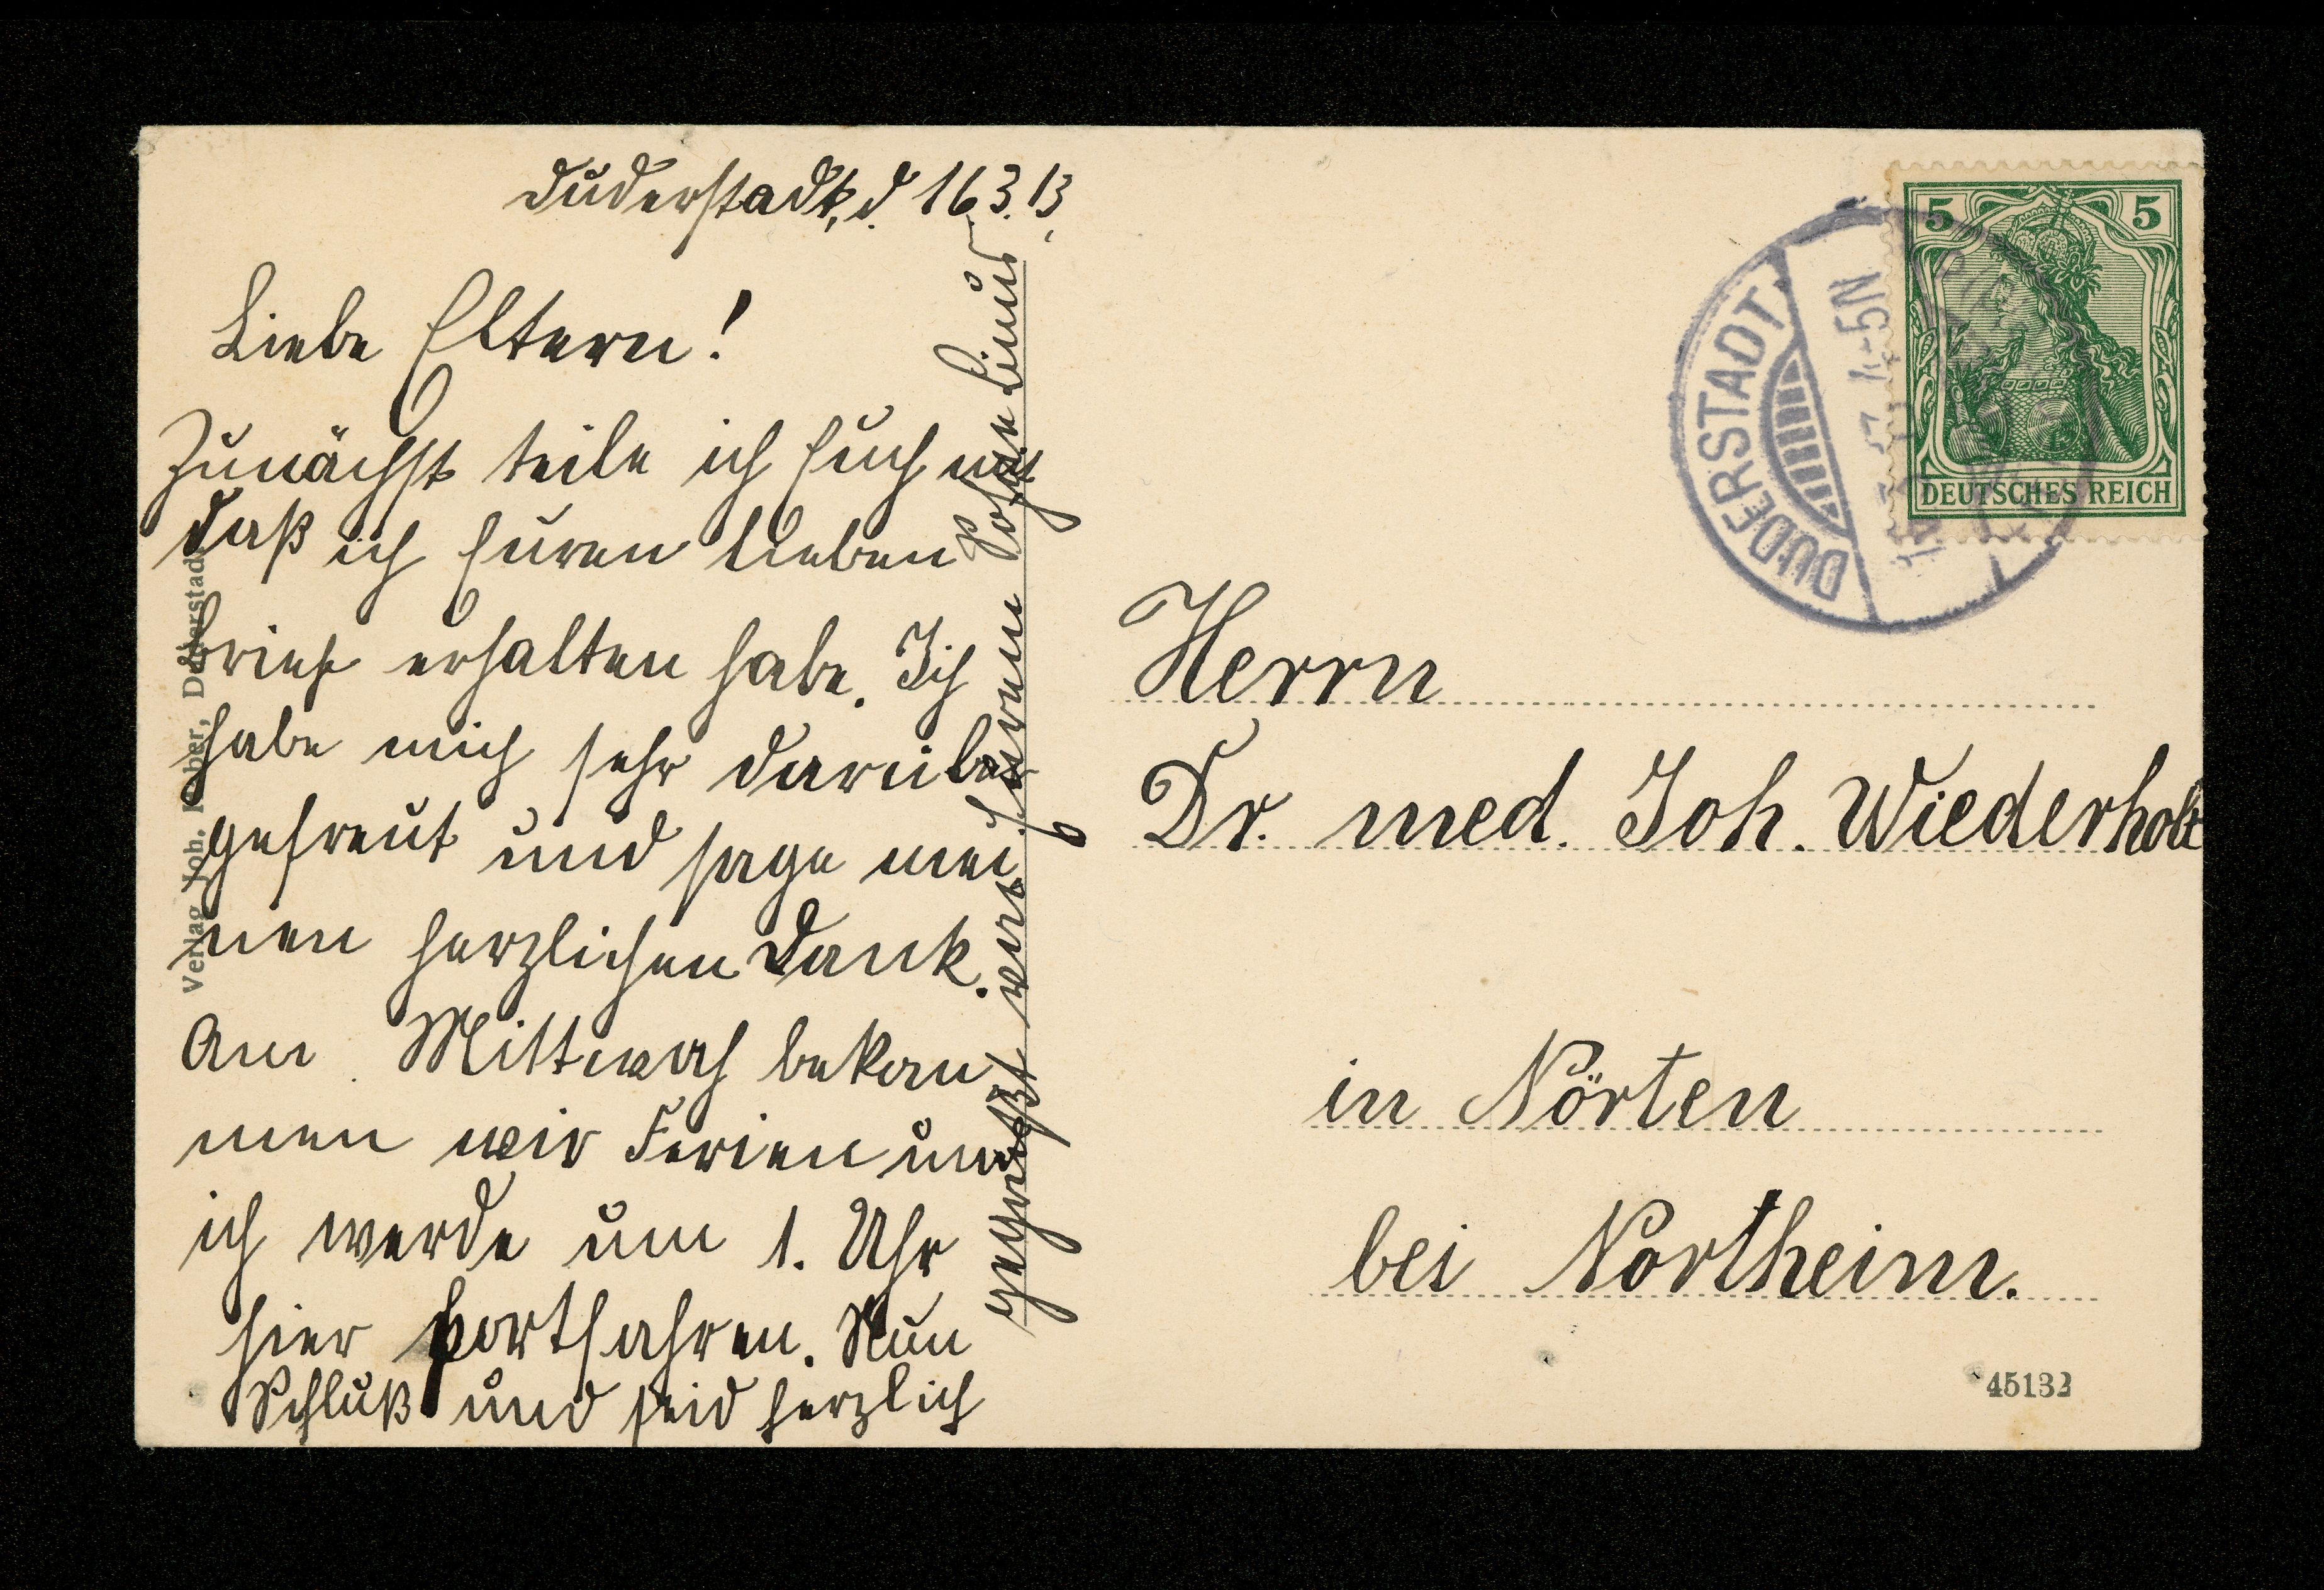 Duderstadt, d. 16.3.13,
Liebe Eltern!
Zunächst teile ich Euch mit
daß ich Euren lieben
brief erhalten habe. Ich
habe mich sehr darüber
gefreut und sage mei-
nen herzlichen Dank.
Am Mittwoch bekom
men wir Ferien und
ich werde um 1. Uhr
hier fortfahren. Nun
Schluß und seid herzlich
gegrüßt von Eurem Sohne
Verlag Joh. Duderstadt
Herrn
Dr. med. Joh. Wiederholt
in Nörten
bei Northeim.
45132
5 5
DEUTSCHES REICH
DUDERSTADT
4-5N